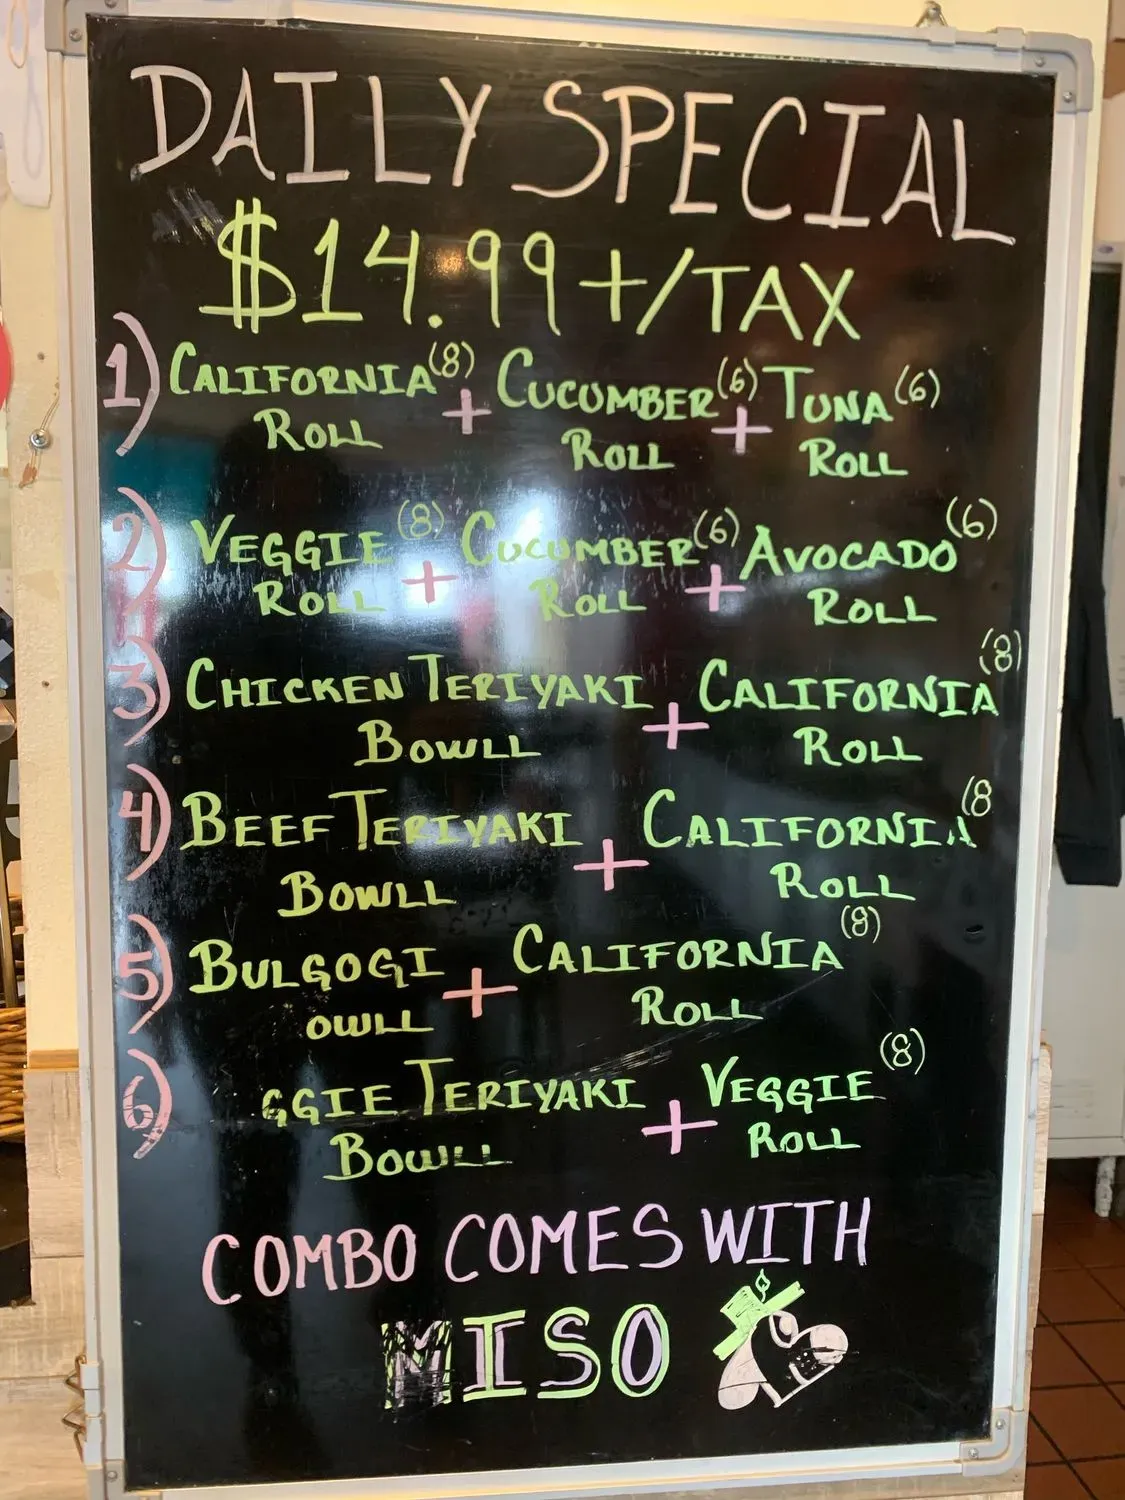 DAILY SPECIAL
$14.99 +/TAX
1) CALIFORNIA (8) + CUCUMBER (6) + TUNA (6)
ROLL ROLL ROLL
2) VEGGIE (8) + CUCUMBER (6) + AVOCADO (6)
ROLL ROLL ROLL
3) CHICKEN TERIYAKI + CALIFORNIA (8)
BOWLL ROLL
4) BEEF TERIYAKI + CALIFORNIA (8
BOWLL ROLL
5) BULGOGI + CALIFORNIA (8)
OWLL ROLL
6) GGIE TERIYAKI + VEGGIE (8)
BOWLL ROLL
COMBO COMES WITH
MISO